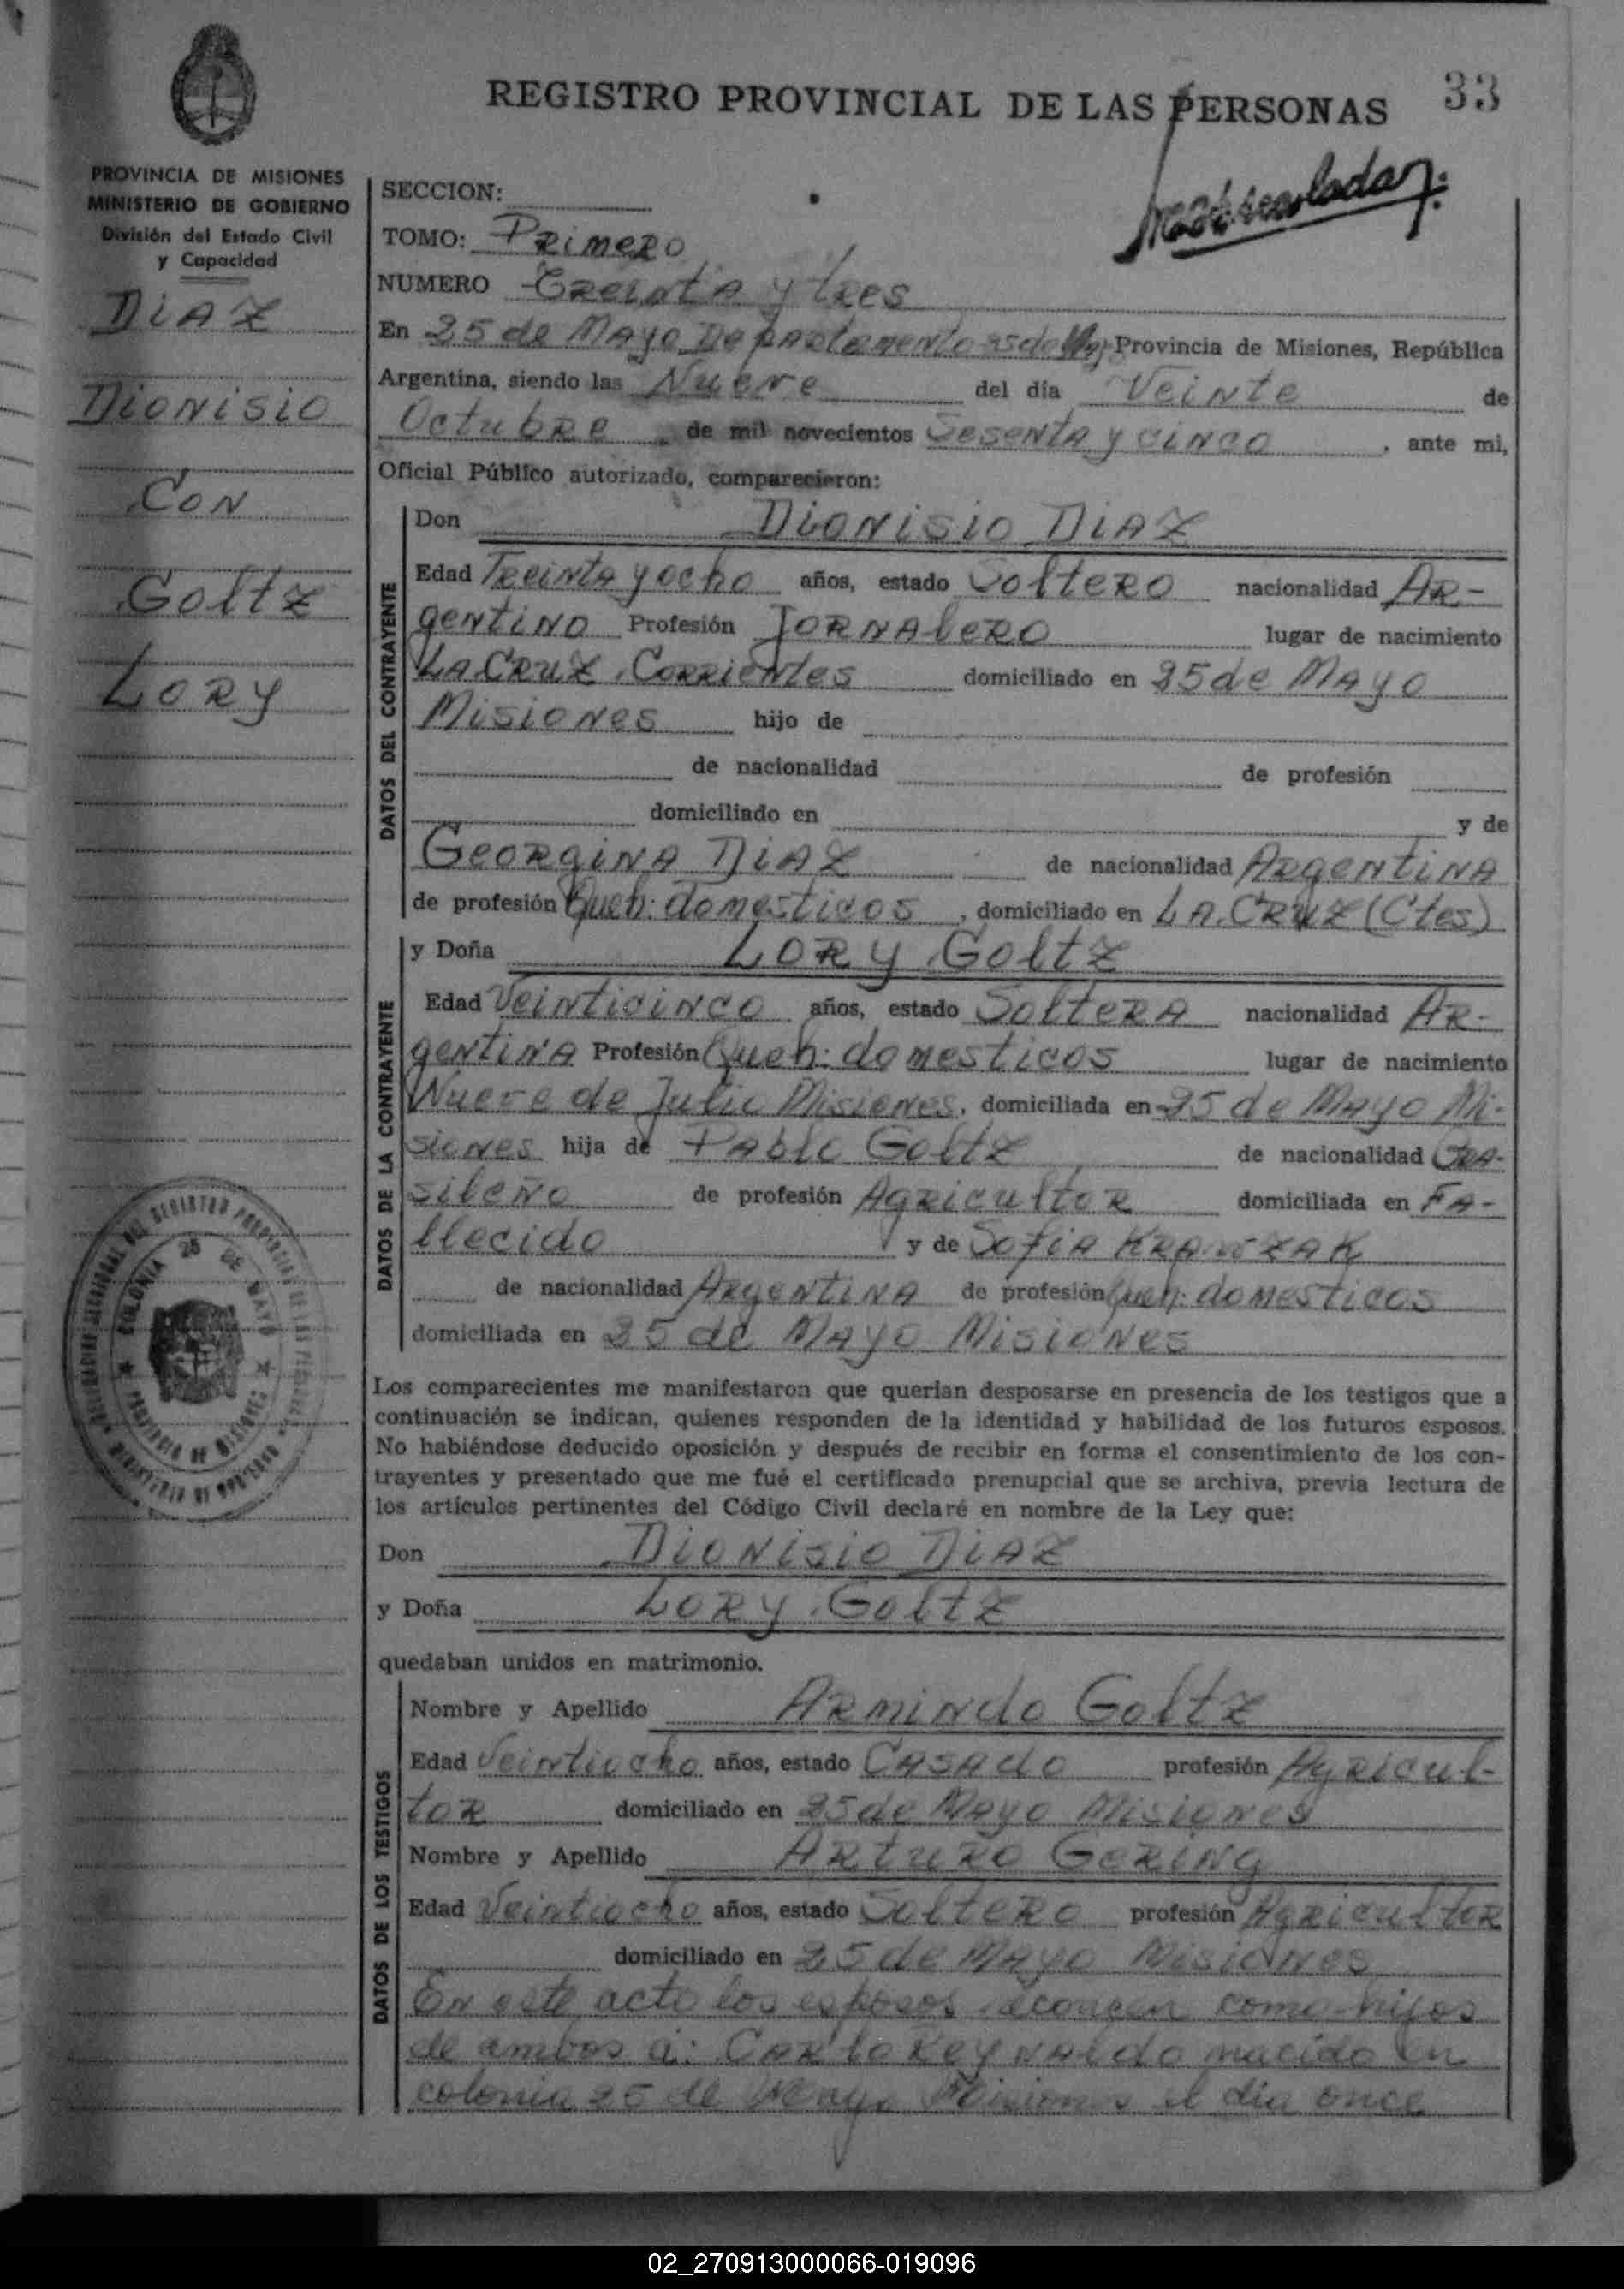 REGISTRO PROVINCIAL DE LAS PERSONAS
33
PROVINCIA DE MISIONES
MINISTERIO DE GOBIERNO
División del Estado Civil
y Capacidad
DiAZ
Dionisio
CON
Goltz
LORY
SECCION:
TOMO: PRimeRo
NUMERO TReintA y tRes
En 25 de MAyo DepARtamento 25 de Provincia de Misiones, República
Argentina, siendo las Nueve del día Veinte de
OctubRe de mil novecientos SesentA y cinco, ante mi,
Oficial Público autorizado, comparecieron:
DATOS DEL CONTRAYENTE
Don Dionisio DiAZ
Edad TReintA y ocho años, estado SolteRo nacionalidad AR-
gentino Profesión JoRNAleRo lugar de nacimiento
LA CRuZ CoRRientes domiciliado en 25 de MAyo
Misiones hijo de
de nacionalidad de profesión
domiciliado en y de
GeoRginA DiAZ de nacionalidad ARgentinA
de profesión Queh: domesticos, domiciliado en LA CRuZ (Ctes)
DATOS DE LA CONTRAYENTE
y Doña LORY Goltz
Edad Veinticinco años, estado SolteRA nacionalidad AR-
gentinA Profesión Queh: domesticos lugar de nacimiento
Nueve de Julio Misiones, domiciliada en 25 de MAyo Mi-
siones hija de PAblo Goltz de nacionalidad BRA-
sileño de profesión AgRicultoR domiciliada en FA-
llecido y de SofiA
de nacionalidad ARgentinA de profesión Queh: domesticos
domiciliada en 25 de MAyo Misiones
Los comparecientes me manifestaron que querían desposarse en presencia de los testigos que a
continuación se indican, quienes responden de la identidad y habilidad de los futuros esposos.
No habiéndose deducido oposición y después de recibir en forma el consentimiento de los con-
trayentes y presentado que me fué el certificado prenupcial que se archiva, previa lectura de
los artículos pertinentes del Código Civil declaré en nombre de la Ley que:
Don Dionisio DiAZ
y Doña LORY Goltz
quedaban unidos en matrimonio.
DATOS DE LOS TESTIGOS
Nombre y Apellido ARmindo Goltz
Edad Veintiocho años, estado CASAdo profesión AgRicul-
toR domiciliado en 25 de MAyo Misiones
Nombre y Apellido ARtuRo GeRing
Edad Veintiocho años, estado SolteRo profesión AgRicultoR
domiciliado en 25 de MAyo Misiones
En este acto los esposos reconocen como hijos
de ambos a: CARlo ReynAldo nacido en
colonia 25 de Mayo Misiones el día once
COLONIA 25 DE MAYO
PROVINCIA DE MISIONES
02_270913000066-019096